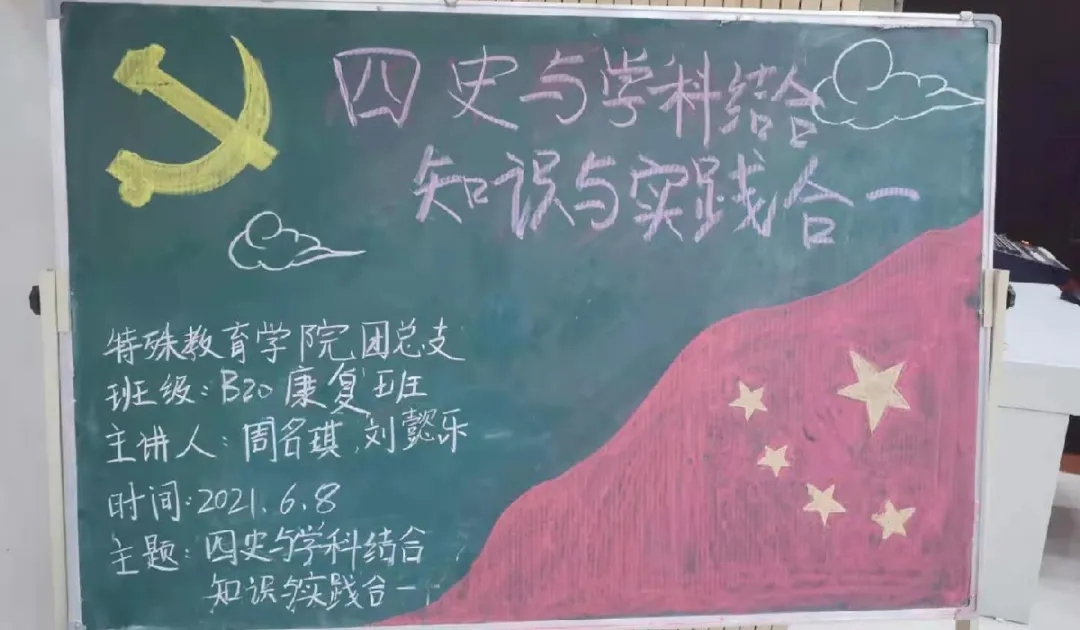 四史与学科结合
知识与实践合一
特殊教育学院团总支
班级:B20康复班
主讲人:周名琪,刘懿乐
时间:2021.6.8
主题:四史与学科结合
知识与实践合一